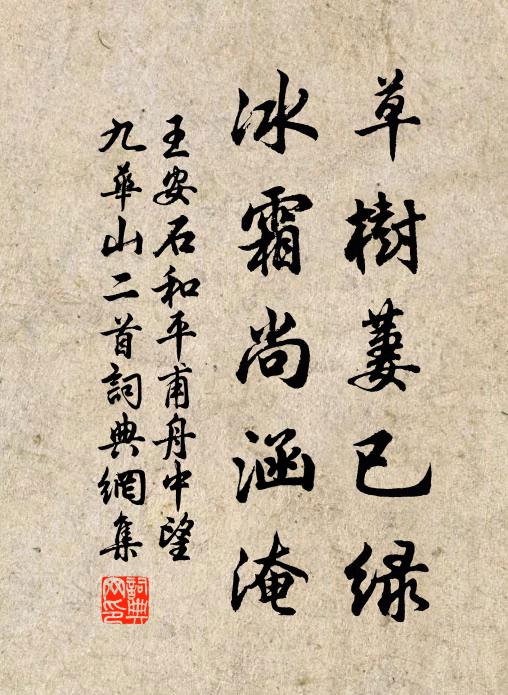 草樹萋已绿
冰霜尚涵淹
王安石和平甫舟中望
九華山二首詞典網集
詞典
网印